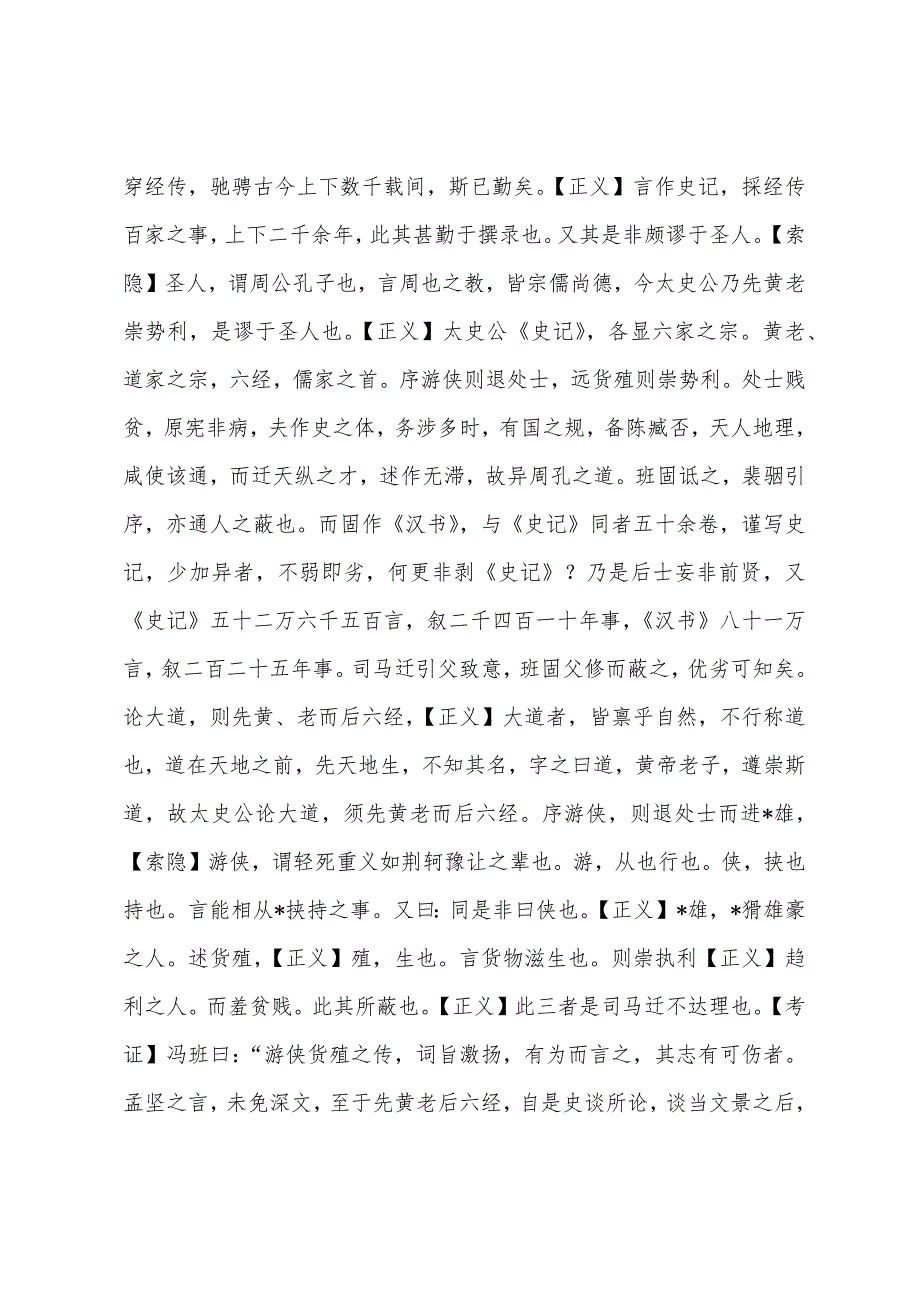 穿经传，驰骋古今上下数千载间，斯已勤矣。【正义】言作史记，採经传
百家之事，上下二千余年，此其甚勤于撰录也。又其是非颇谬于圣人。【索
隐】圣人，谓周公孔子也，言周也之教，皆宗儒尚德，今太史公乃先黄老
崇势利，是谬于圣人也。【正义】太史公《史记》，各显六家之宗。黄老、
道家之宗，六经，儒家之首。序游侠则退处士，远货殖则崇势利。处士贱
贫，原宪非病，夫作史之体，务涉多时，有国之规，备陈臧否，天人地理，
咸使该通，而迁天纵之才，述作无滞，故异周孔之道。班固诋之，裴骃引
序，亦通人之蔽也。而固作《汉书》，与《史记》同者五十余卷，谨写史
记，少加异者，不弱即劣，何更非剥《史记》？乃是后士妄非前贤，又
《史记》五十二万六千五百言，叙二千四百一十年事，《汉书》八十一万
言，叙二百二十五年事。司马迁引父致意，班固父修而蔽之，优劣可知矣。
论大道，则先黄、老而后六经，【正义】大道者，皆禀乎自然，不行称道
也，道在天地之前，先天地生，不知其名，字之曰道，黄帝老子，遵崇斯
道，故太史公论大道，须先黄老而后六经。序游侠，则退处士而进*雄，
【索隐】游侠，谓轻死重义如荆轲豫让之辈也。游，从也行也。侠，挟也
持也。言能相从*挟持之事。又曰：同是非曰侠也。【正义】*雄，*猾雄豪
之人。述货殖，【正义】殖，生也。言货物滋生也。则崇执利【正义】趋
利之人。而羞贫贱。此其所蔽也。【正义】此三者是司马迁不达理也。【考
证】冯班曰：“游侠货殖之传，词旨激扬，有为而言之，其志有可伤者。
孟坚之言，未免深文，至于先黄老后六经，自是史谈所论，谈当文景之后，